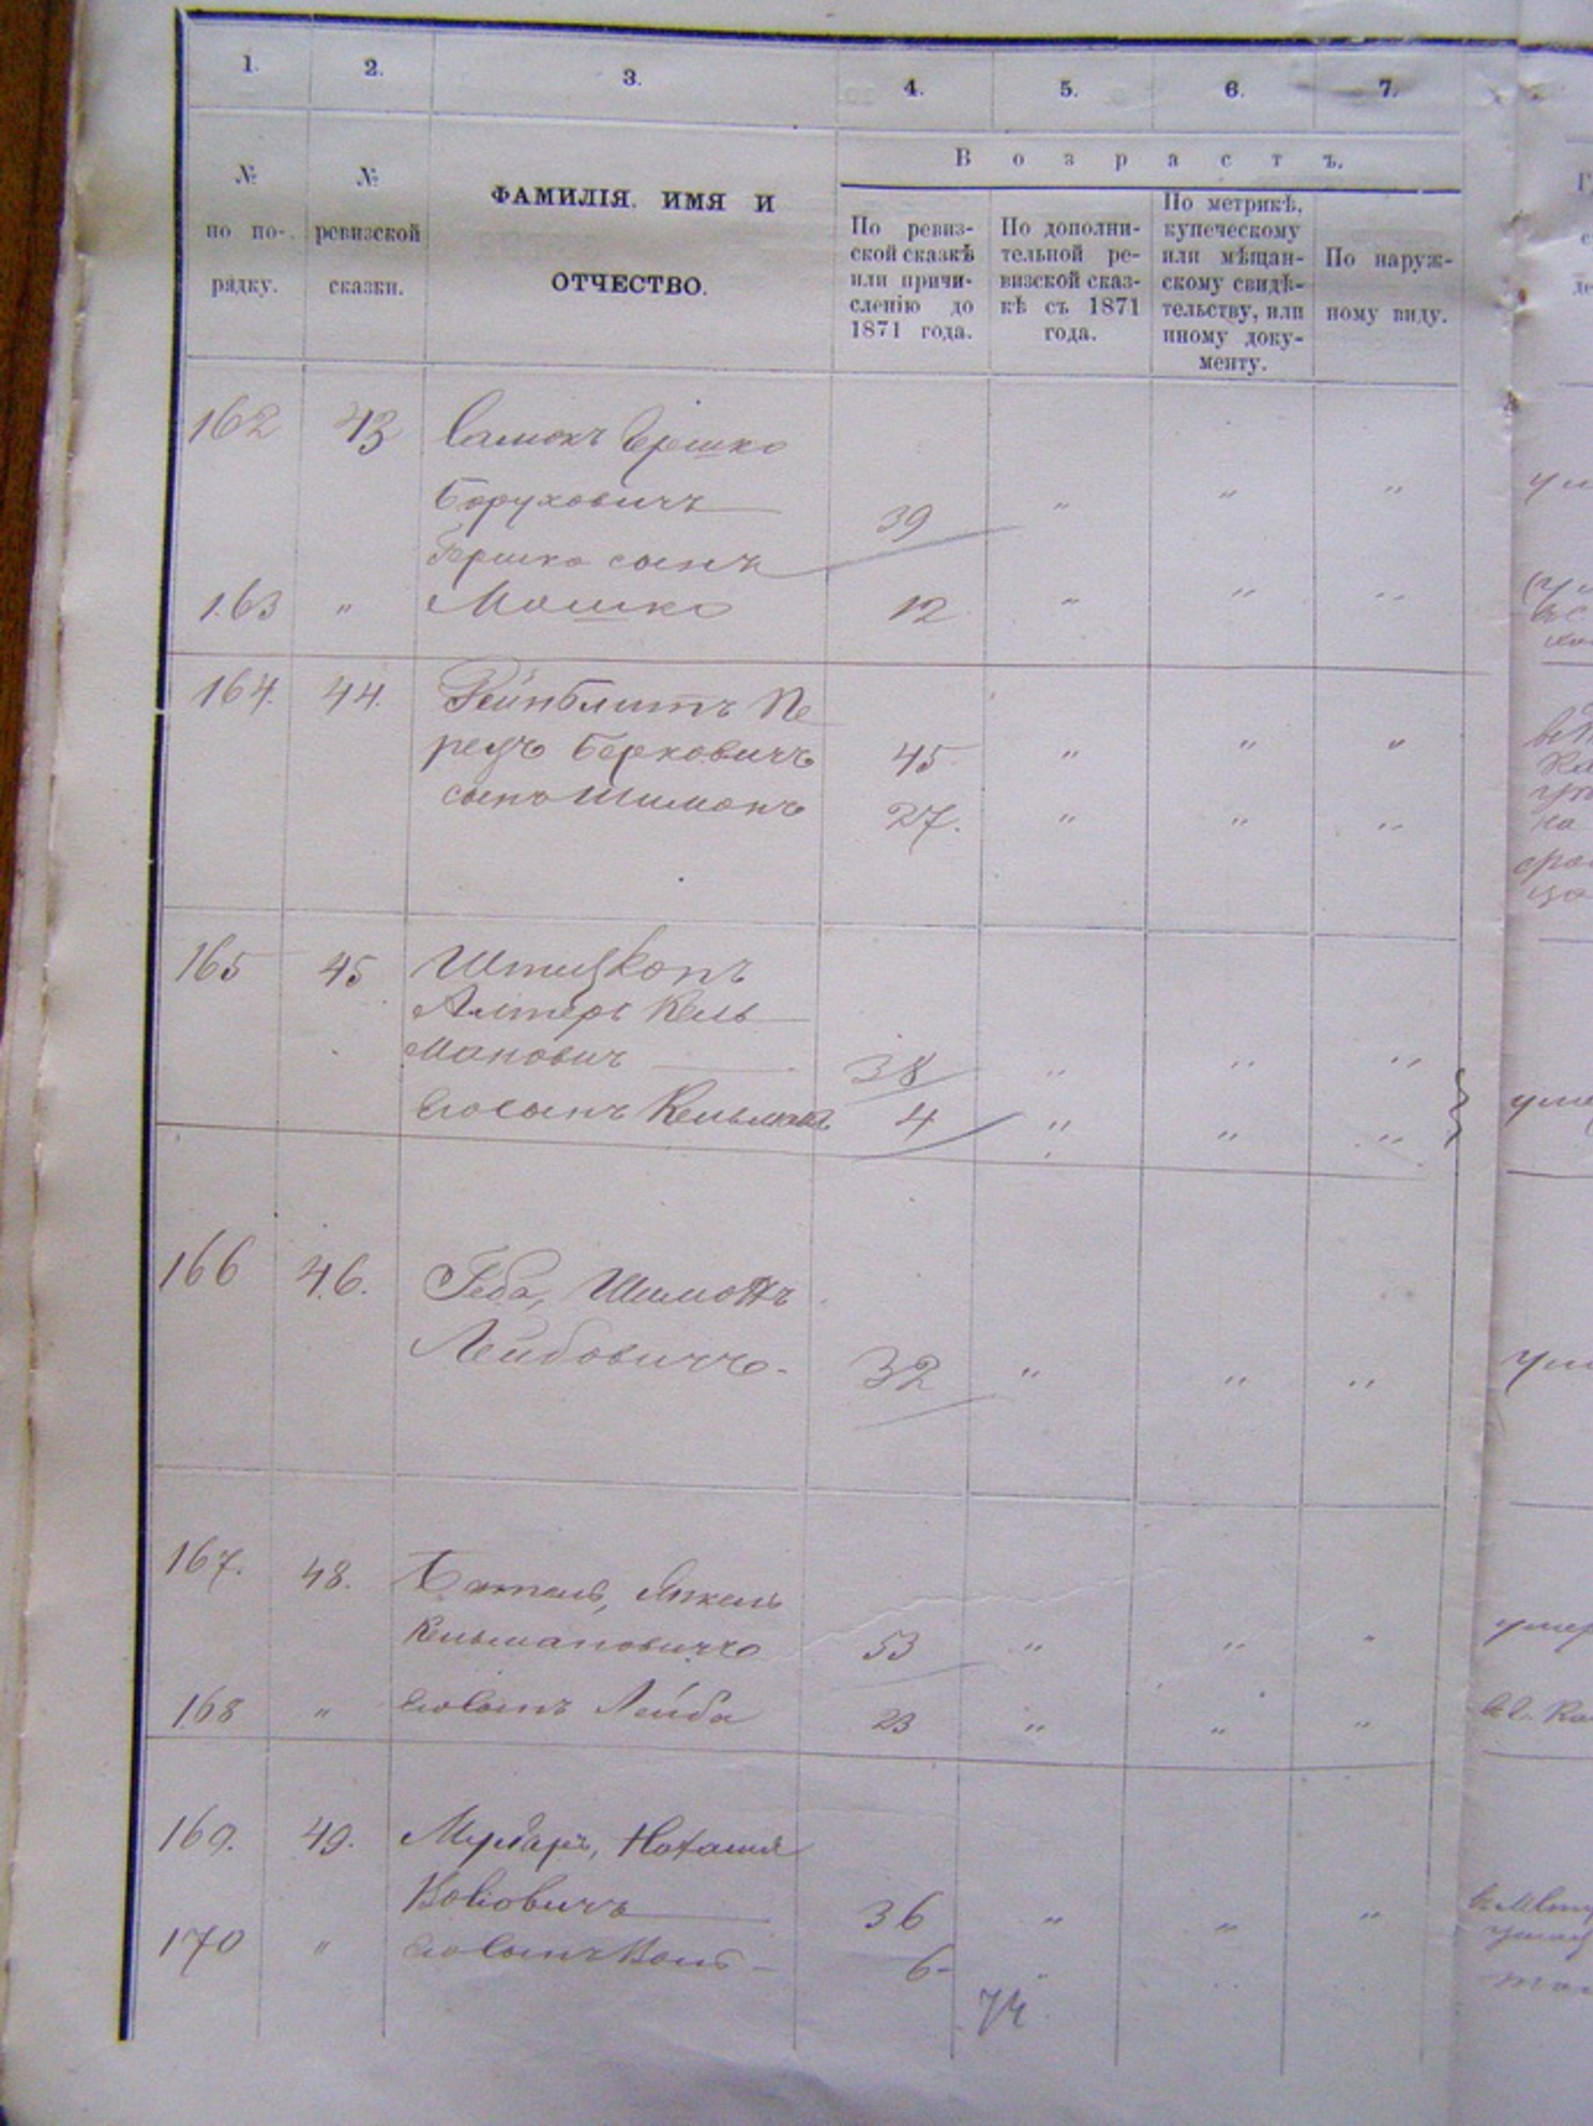 1. 2. 3. 4. 5. 6. 7.
№ по по-рядку.
№ ревизской сказки.
ФАМИЛІЯ. ИМЯ И
ОТЧЕСТВО.
Возрастъ.
По ревиз-
ской сказкѣ
или причи-
сленію до
1871 года.
По дополни-
тельной ре-
визской сказ-
кѣ съ 1871
года.
По метрикѣ,
купеческому
или мѣщан-
скому свидѣ-
тельству, или
иному доку-
менту.
По наруж-
ному виду.
162 43 Ершко
Боруховичъ 39 " " "
Гершка сынъ
163 " Мошко 12 " " "
164. 44. Рейнблитъ Пе
рецъ Берковичъ 45 " " "
сынъ Шимонъ 27. " " "
165 45 Штицкопъ
Алтеръ Кель
мановичъ 38 " " "
Его сынъ Кельманъ 4 " " "
166 46. Геба, Шимонъ
Лейбовичъ- 32 " " "
167. 48. Янкель
Кельмановичъ 53 " " "
168 " Его сынъ Лейба 23 " " "
169. 49. Муляръ,
Вольовичъ 36 " " "
170 " Его сынъ Воль - 6- "